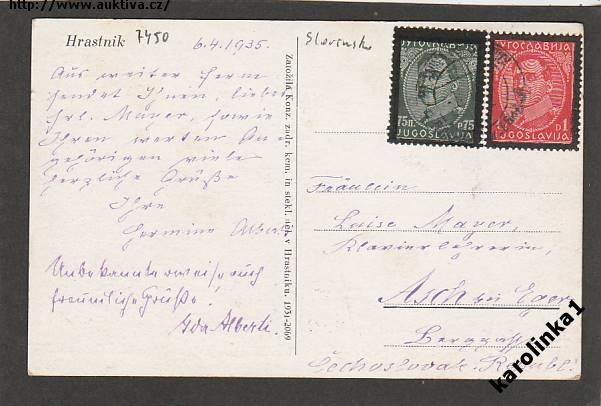 http://www.auktiva.cz
Hrastnik 7450 6.4.1935.
Aus weiter Ferne
sendet Ihnen, liebes
Frl. Mayer, sowie
Ihren werten An-
gehörigen viele
herzliche Grüße
Ihre
Hermine Alberti
Unbekannterweise auch
freundliche Grüße.
Ida Alberti
Založila Konz. zadr. kem. in stekl. del. v Hrastniku. 1931-2069
Slovinsko
ЈУГОСЛАВИЈА
75П. P75
JUGOSLAVIJA
ЈУГОСЛАВИЈА
D1
JUGOSLAVIJA
Fräulein
Luise Mayer,
Klavierlehrerin,
Asch bei Eger
Čechoslovak. Republ.
karolinka1